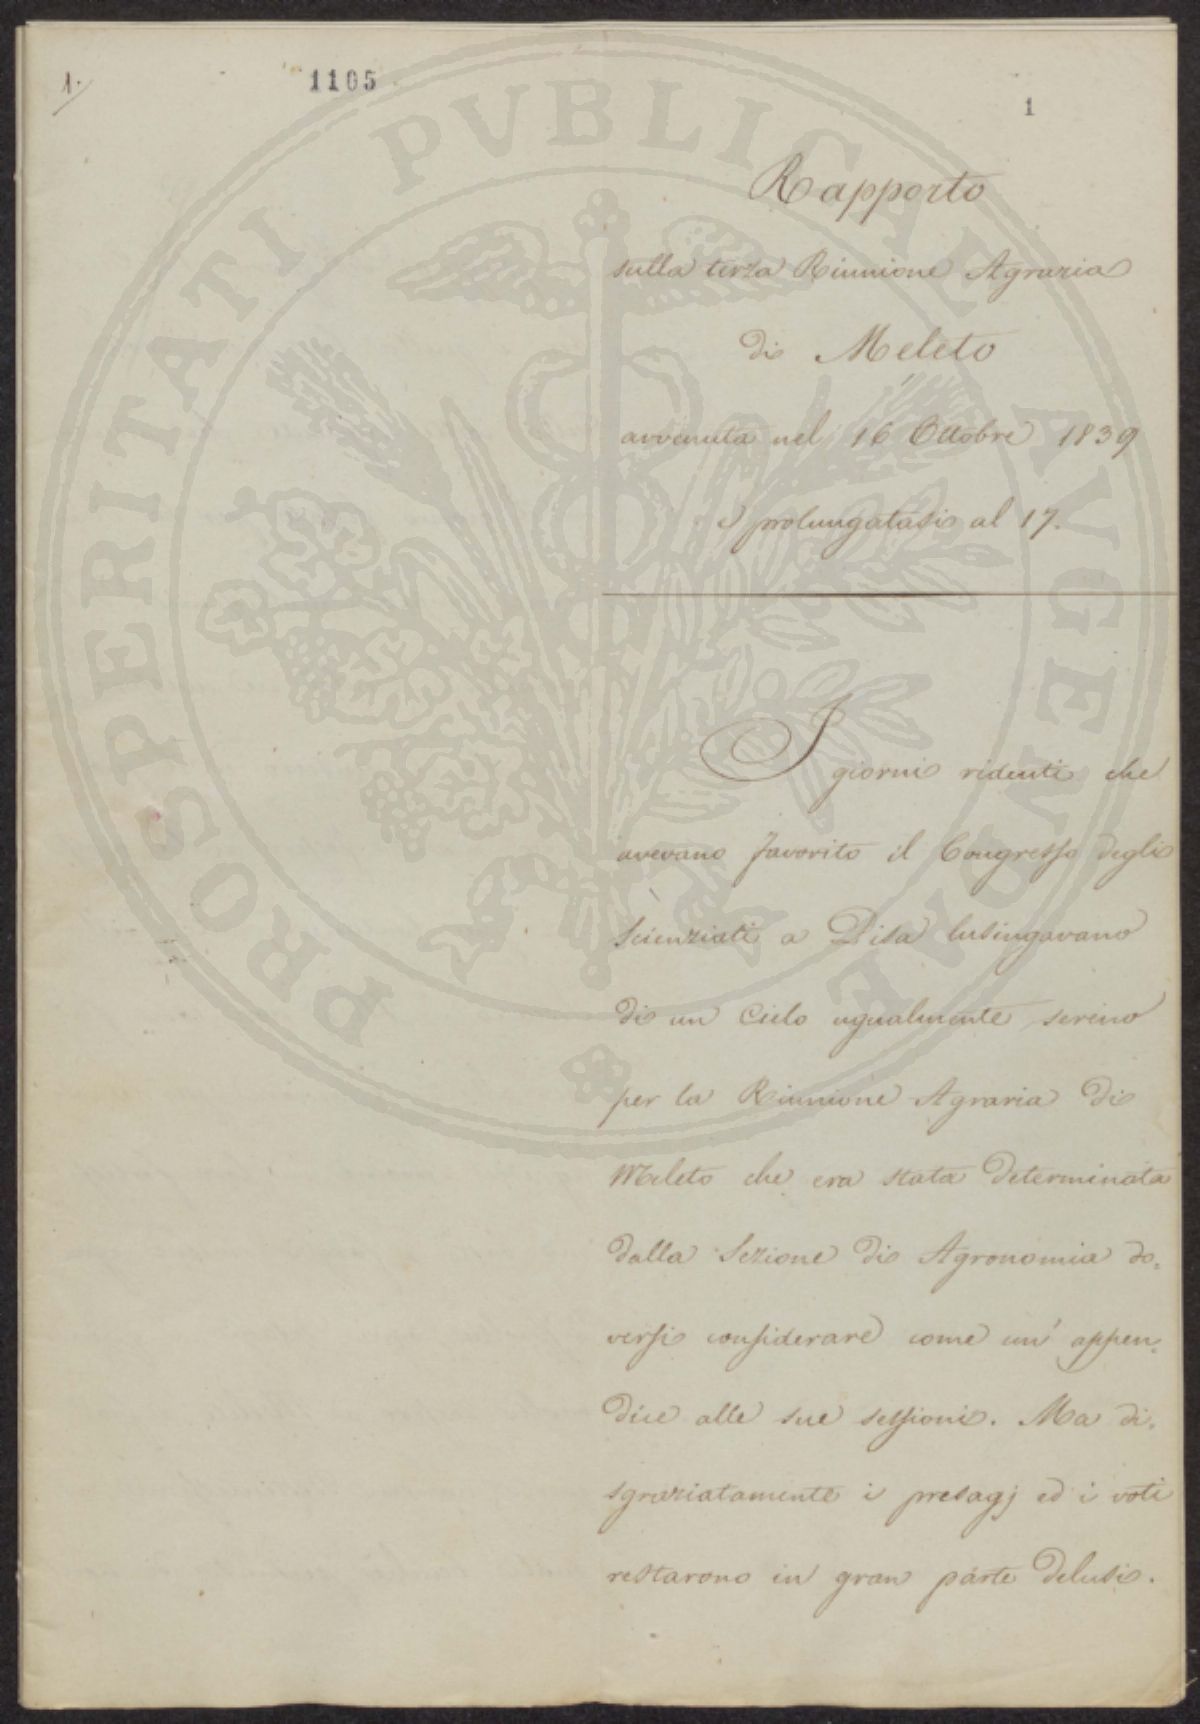 1.
1105
1
Rapporto
sulla terza Riunione Agraria
di Meleto
avvenuta nel 16 Ottobre 1839
e prolungatasi al 17.
I giorni ridenti che
avevano favorito il Congresso degli
Scienziati a Pisa lusingavano
di un Cielo ugualmente sereno
per la Riunione Agraria di
Meleto che era stata determinata
dalla Sezione di Agronomia do=
versi considerare come un' appen=
dice alle sue sessioni. Ma di=
sgraziatamente i presagj ed i voti
restarono in gran parte delusi.
PROSPERITATI PVBLICAE AVGENDAE